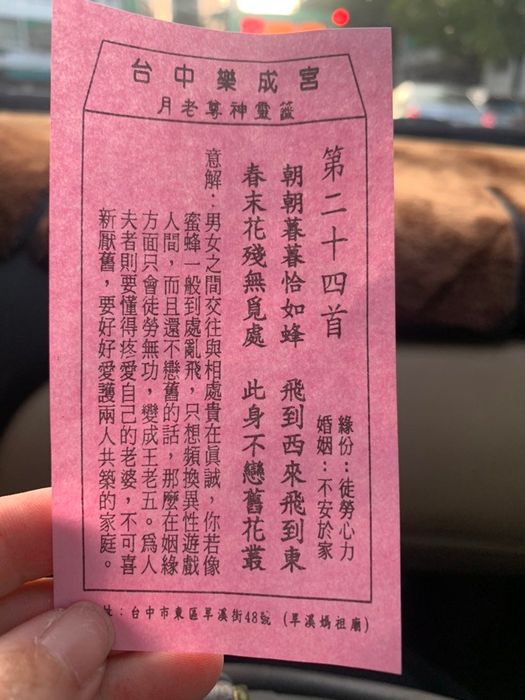 台中樂成宮
月老尊神靈籤
第二十四首
緣份：徒勞心力
婚姻：不安於家
朝朝暮暮恰如蜂　飛到西來飛到東
春末花殘無覓處　此身不戀舊花叢
意解：男女之間交往與相處貴在眞誠，你若像
蜜蜂一般到處亂飛，只想頻換異性遊戲
人間，而且還不戀舊的話，那麼在姻緣
方面只會徒勞無功，變成王老五。爲人
夫者則要懂得疼愛自己的老婆，不可喜
新厭舊，要好好愛護兩人共築的家庭。
址：台中市東區旱溪街48號（旱溪媽祖廟）